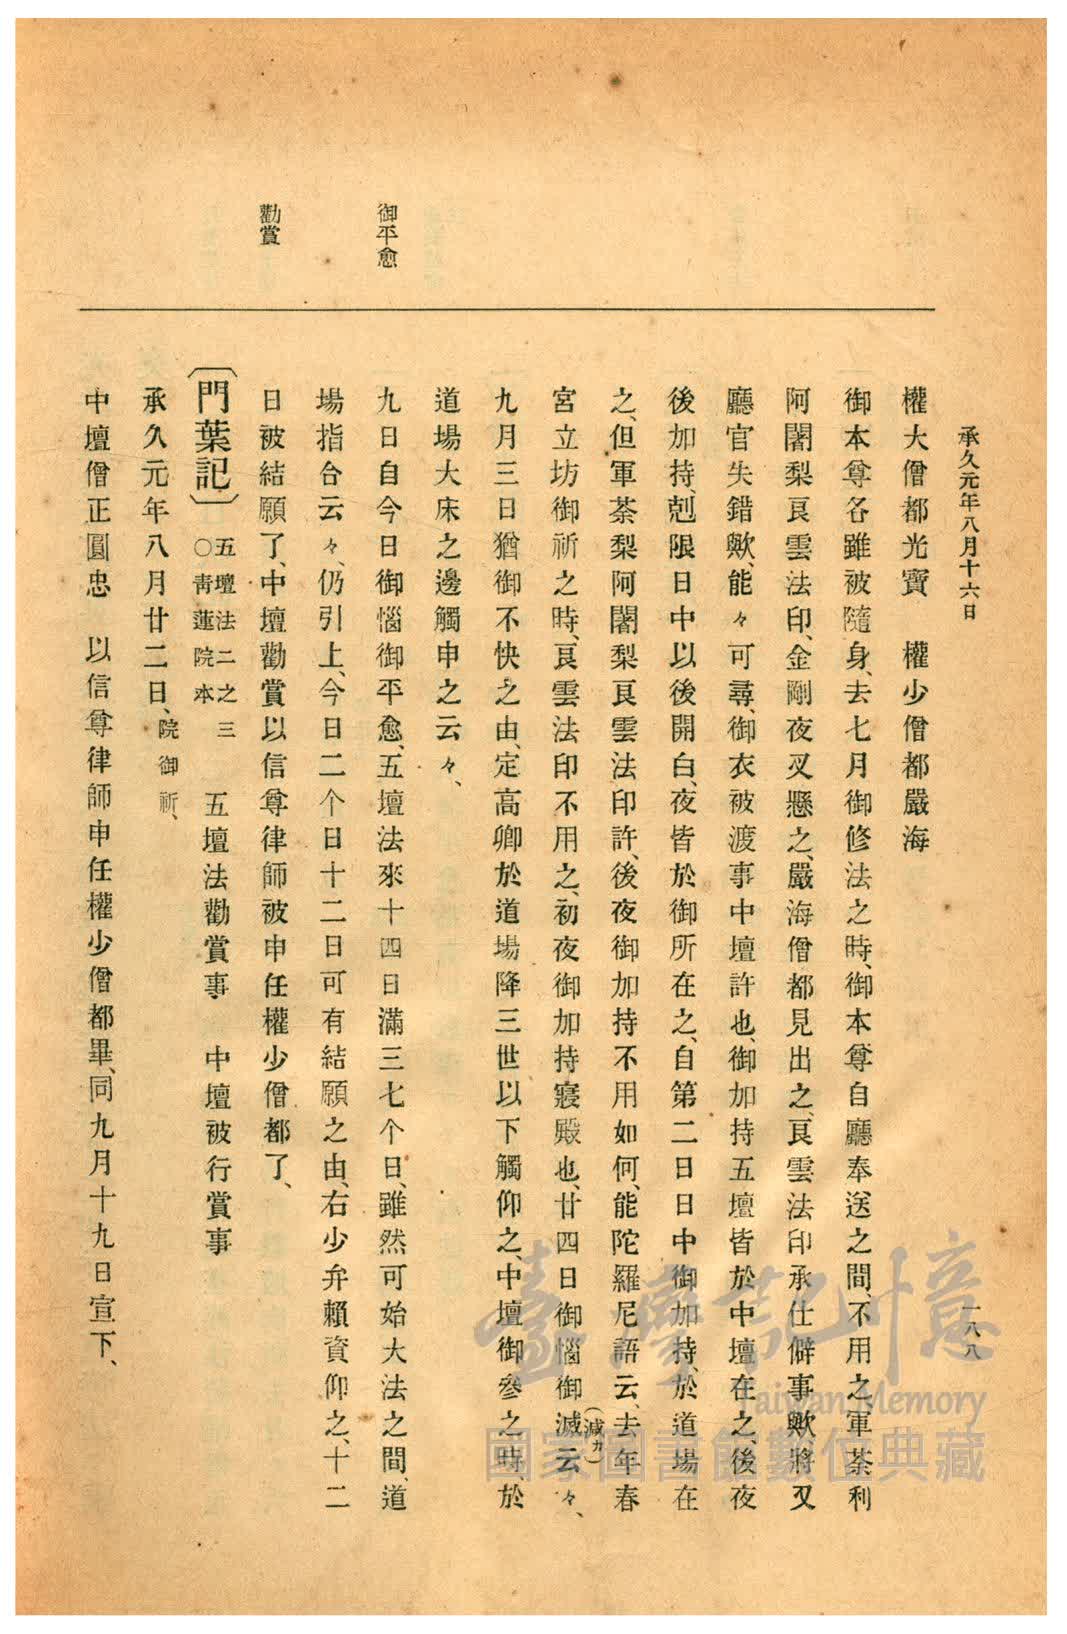 承久元年八月十六日
一八八
權大僧都光寶　權少僧都嚴海
御本尊各雖被隨身、去七月御修法之時、御本尊自廳奉送之間、不用之、軍荼利
阿闍梨良雲法印、金剛夜叉懸之、嚴海僧都見出之、良雲法印承仕僻事歟、將又
廳官失錯歟、能々可尋、御衣被渡事中壇許也、御加持五壇皆於中壇在之、後夜
後加持、剋限日中以後開白、夜皆於御所在之、自第二日日中御加持、於道場在
之、但軍荼梨阿闍梨良雲法印許、後夜御加持不用如何、能陀羅尼語云、去年春
宮立坊御祈之時、良雲法印不用之、初夜御加持寢殿也、廿四日御惱御滅（減カ）云々、
九月三日猶御不快之由、定高卿於道場降三世以下觸仰之、中壇御參之時、於
道場大床之邊觸申之云々、
御平愈
九日自今日御惱御平愈、五壇法來十四日滿三七个日、雖然可始大法之間、道
場指合云々、仍引上、今日二个日十二日可有結願之由、右少弁賴資仰之、十二
勸賞
日被結願了、中壇勸賞以信尊律師被申任權少僧都了、
〔門葉記〕五壇法二之三○靑蓮院本　五壇法勸賞事　中壇被行賞事
承久元年八月廿二日、院御祈、
中壇僧正圓忠　以信尊律師申任權少僧都畢、同九月十九日宣下、
臺灣記憶
Taiwan Memory
國家圖書館數位典藏